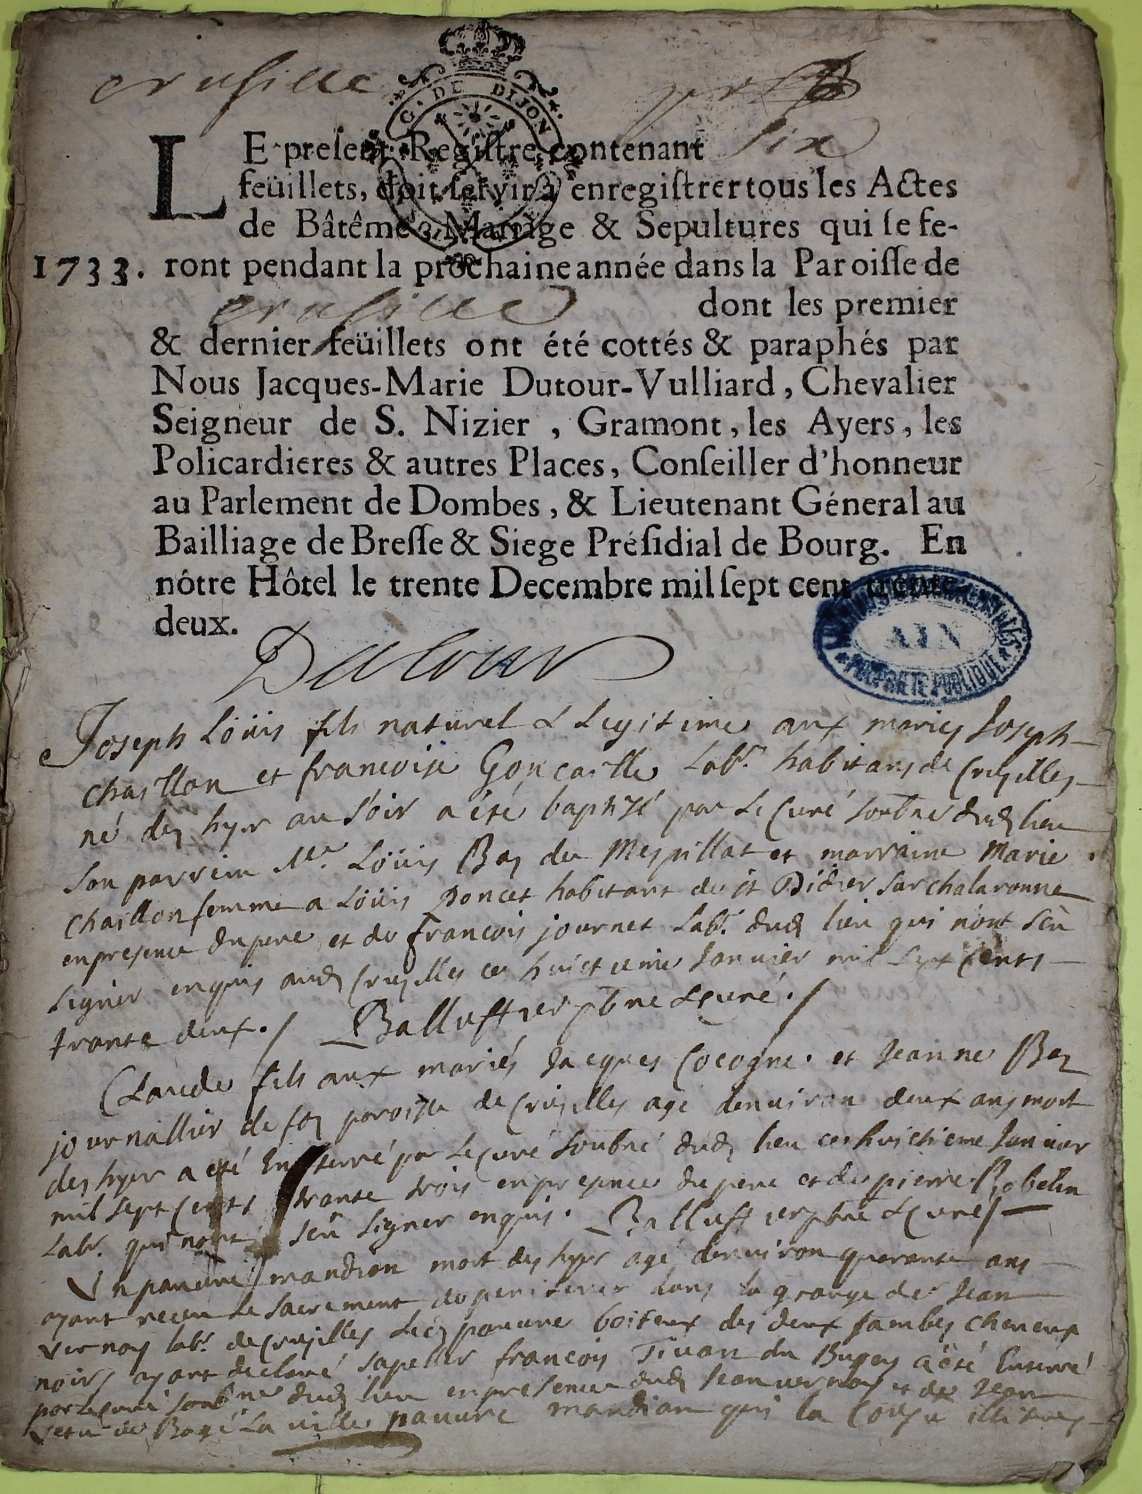 crusille
G. DE DIJON
LE present Registre contenant six
feüillets, doit servir à enregistrer tous les Actes
de Bâtême, Mariage & Sepultures qui se fe-
1733. ront pendant la prochaine année dans la Paroisse de
crusille dont les premier
& dernier feüillets ont été cottés & paraphés par
Nous Jacques-Marie Dutour-Vulliard, Chevalier
Seigneur de S. Nizier, Gramont, les Ayers, les
Policardieres & autres Places, Conseiller d'honneur
au Parlement de Dombes, & Lieutenant Géneral au
Bailliage de Bresse & Siege Présidial de Bourg. En
nôtre Hôtel le trente Decembre mil sept cent trente
deux.
AIN
PROPRIETE PUBLIQUE
Dutour
Joseph Löüis fils naturel & Legitime aux mariez Joseph
chaillon et francoise Goncaille Labr. habitans de Cruzilles
né dez hyer au soir a été baptisé par Le Curé soubné dud lieu
son parrin Mr. Löüis Bay de Mespillat et marraine Marie
chaillon femme a Löüis Poncet habitant de st Didier sur chalaronne
en presence du pere et de francois journet Labr. dud lieu qui n'ont sçu
signer enquis aud Cruzilles ce huictieme Janvier mil sept Cents
trante deux./ Balluffier pbre & curé./
Claude fils aux mariés Jacques Cocogne et Jeanne Bay
journallier de paroisse de Cruzilles agé denviron deux ans mort
dez hyer a eté Enterré par Le curé soubné dud lieu ce huictieme Janvier
mil sept Cents trante trois en presence du pere et de pierre Robelin
Labr. qui n'ont sçu signer enquis. Balluffier pbre & curé/
Un pauvre mandian mort dez hyer agé denviron quarante ans
ayant receu Le sacrement de penitence dans la grange de Jean
vernay labr. de Cruzilles Led pauvre boiteux des deux Jambes cheveux
noirs ayant declaré sapeller francois Tivan du Bugey a été Enterré
par Le curé soubné dud lieu en presence dud Jean vernay et de Jean
de Bagé La ville pauvre mandian qui la illitrez